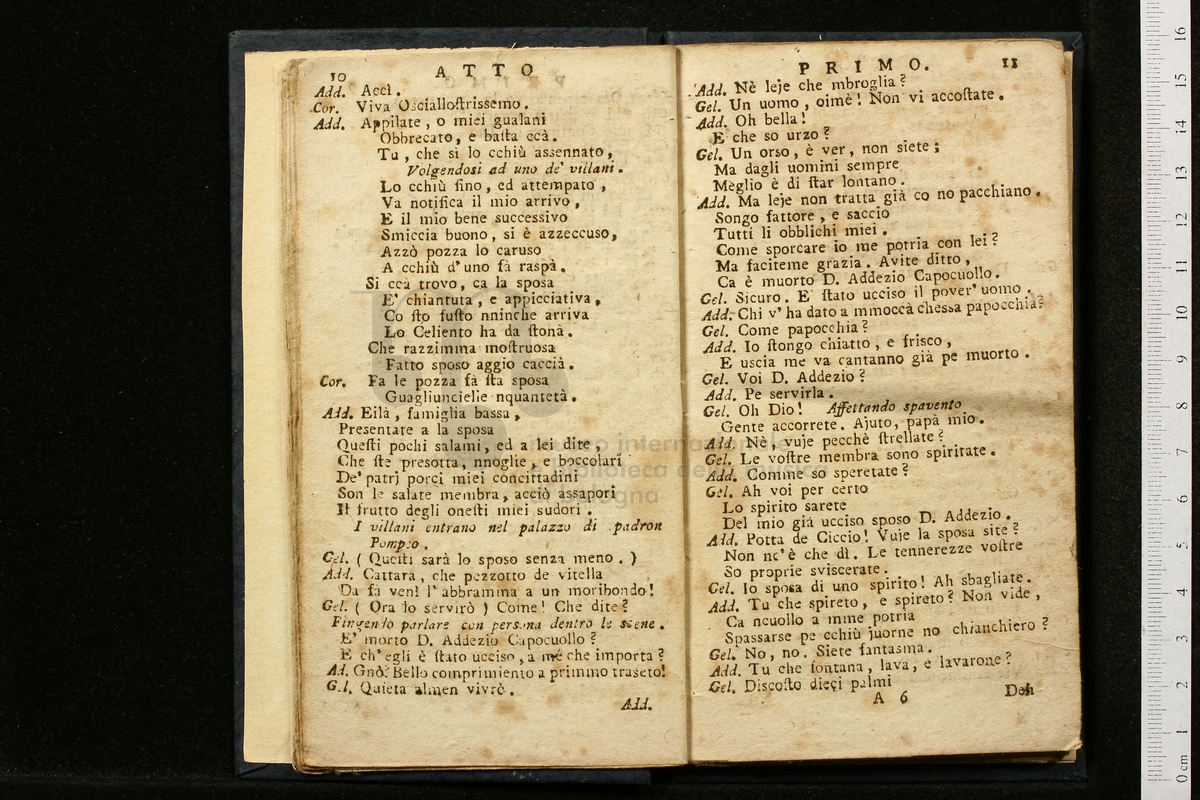 10 ATTO
Add. Accì.
Cor. Viva Osciallostrissemo.
Add. Appilate, o miei gualani
Obbrecato, e basta ccà.
Tu, che si lo cchiù assennato,
Volgendosi ad uno de' villani.
Lo cchiù fino, ed attempato,
Va notifica il mio arrivo,
E il mio bene successivo
Smiccia buono, si è azzeccuso,
Azzò pozza lo caruso
A cchiù d'uno fà raspà.
Si ccà trovo, ca la sposa
E' chiantuta, e appicciativa,
Co sto fusto nninche arriva
Lo Celiento ha da stonà.
Che razzimma mostruosa
Fatto sposo aggio caccià.
Cor. Fa le pozza fà sta sposa
Guagliuncielle nquantetà.
Add. Eilà, famiglia bassa,
Presentate a la sposa
Questi pochi salami, ed a lei dite,
Che ste presotta, nnoglie, e boccolari
De' patrj porci miei concittadini
Son le salate membra, acciò assapori
Il frutto degli onesti miei sudori.
I villani entrano nel palazzo di padron
Pompeo.
Gel. ( Questi sarà lo sposo senza meno. )
Add. Cattara, che pezzotto de vitella
Da fà venì l'abbramma a un moribondo!
Gel. ( Ora lo servirò ) Come! Che dite?
Fingendo parlare con persona dentro le scene.
E' morto D. Addezio Capocuollo?
E ch'egli è stato ucciso, a me che importa?
Ad. Gnò? Bello comprimiento a primmo traseto!
Gel. Quieta almen vivrò.
Add.
PRIMO. 11
Add. Nè leje che mbroglia?
Gel. Un uomo, oimè! Non vi accostate.
Add. Oh bella!
E che so urzo?
Gel. Un orso, è ver, non siete;
Ma dagli uomini sempre
Meglio è di star lontano.
Add. Ma leje non tratta già co no pacchiano.
Songo fattore, e saccio
Tutti li obblichi miei.
Come sporcare io me potria con lei?
Ma faciteme grazia. Avite ditto,
Ca è muorto D. Addezio Capocuollo.
Gel. Sicuro. E' stato ucciso il pover'uomo.
Add. Chi v'ha dato a mmoccà chessa papocchia?
Gel. Come papocchia?
Add. Io stongo chiatto, e frisco,
E uscia me va cantanno già pe muorto.
Gel. Voi D. Addezio?
Add. Pe servirla.
Gel. Oh Dio! Affettando spavento
Gente accorrete. Ajuto, papà mio.
Add. Nè, vuje pecchè strellate?
Gel. Le vostre membra sono spiritate.
Add. Comme so speretate?
Gel. Ah voi per certo
Lo spirito sarete
Del mio già ucciso sposo D. Addezio.
Add. Potta de Ciccio! Vuje la sposa site?
Non nc'è che dì. Le tennerezze vostre
So proprie sviscerate.
Gel. Io sposa di uno spirito! Ah sbagliate.
Add. Tu che spireto, e spireto? Non vide,
Ca ncuollo a mme potria
Spassarse pe cchiù juorne no chianchiero?
Gel. No, no. Siete fantasma.
Add. Tu che fontana, lava, e lavarone?
Gel. Discosto dieci palmi
A 6 Deh